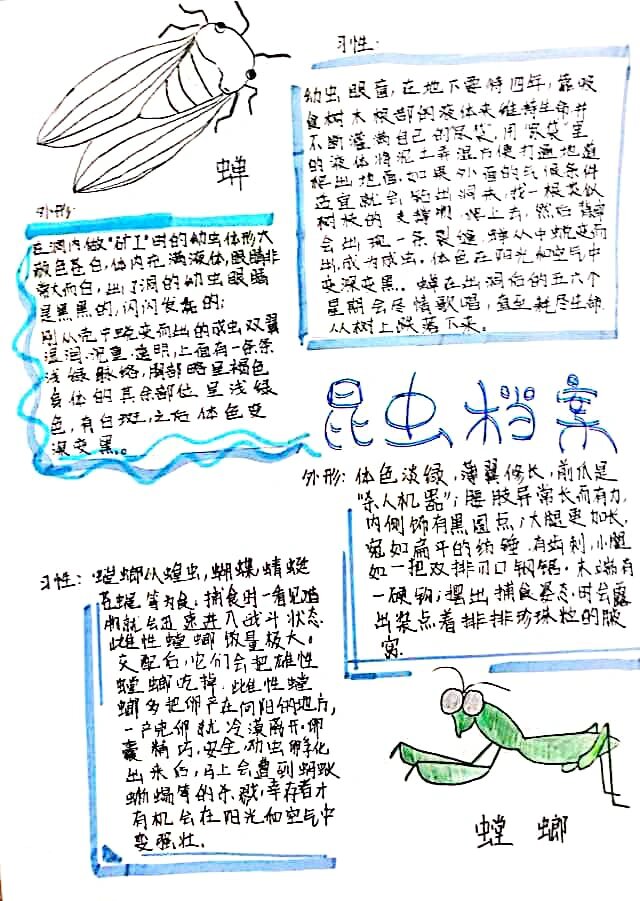 蝉
习性:
幼虫眼盲,在地下要待四年,靠吸
食树木根部的液体来维持生命并
不断灌满自己的"尿袋",用"尿袋"里
的液体将泥土弄湿方便打通地道
爬出地面,如果外面的气候条件
适宜就会钻出洞来,找一根类似
树枝的支撑物,爬上去,然后背部
会出现一条裂缝,蝉从中蜕变而
出,成为成虫,体色在阳光和空气中
变深变黑。蝉在出洞后的五六个
星期会尽情歌唱,直至耗尽生命
从树上跌落下来。
外形:
在洞内做"矿工"时的幼虫体形大
颜色苍白,体内充满液体,眼睛非
常大而白,出了洞的幼虫眼睛
是黑黑的,闪闪发亮的;
刚从壳中蜕变而出的成虫双翼
湿润、沉重、透明,上面有一条条
浅绿脉络,胸部略呈褐色
身体的其余部位呈浅绿
色,有白斑,之后体色变
深变黑。
昆虫档案
外形:体色淡绿,薄翼修长,前爪是
"杀人机器";腰肢异常长而有力,
内侧饰有黑圆点;大腿更加长,
宛如扁平的纺锤,有齿刺,小腿
如一把双排刃口钢锯,末端有
一硬钩;摆出捕食姿态时会露
出装点着排排珍珠粒的腋
窝
习性:螳螂以蝗虫,蝴蝶,蜻蜓
苍蝇等为食。捕食时一看见猎
物就会迅速进入战斗状态
雌性螳螂饭量极大。
交配后,它们会把雄性
螳螂吃掉。雌性螳
螂多把卵产在向阳的地方,
一产完卵就冷漠离开,卵
囊精巧,安全,幼虫孵化
出来后,马上会遭到蚂蚁
蜥蜴等的杀戮,幸存者才
有机会在阳光和空气中
变强壮。
螳螂